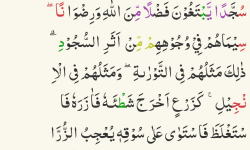 سُجَّدًا يَّبْتَغُوْنَ فَضْلًا مِّنَ اللّٰهِ وَرِضْوَانًا ۖ
سِيْمَاهُمْ فِيْ وُجُوْهِهِمْ مِّنْ اَثَرِ السُّجُوْدِ ؕ
ذٰلِكَ مَثَلُهُمْ فِي التَّوْرٰىةِ ۖ وَمَثَلُهُمْ فِي الْاِ
نْجِيْلِ ۚ كَزَرْعٍ اَخْرَجَ شَطْـَٔهٗ فَاٰزَرَهٗ فَا
سْتَغْلَظَ فَاسْتَوٰى عَلٰى سُوْقِهٖ يُعْجِبُ الزُّرَّا